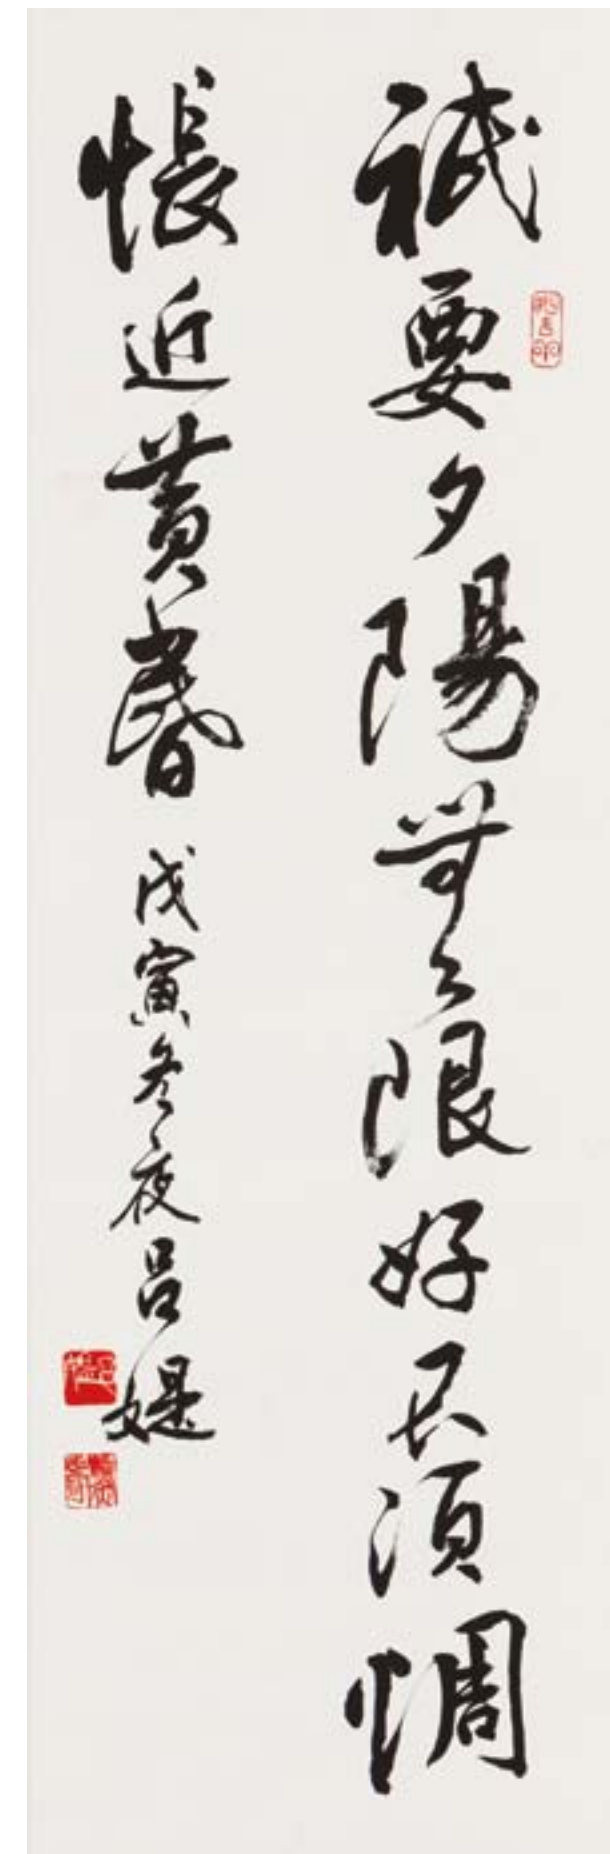 祇要夕陽無限好須惆
悵近黄昏 戊寅冬夜吕媞